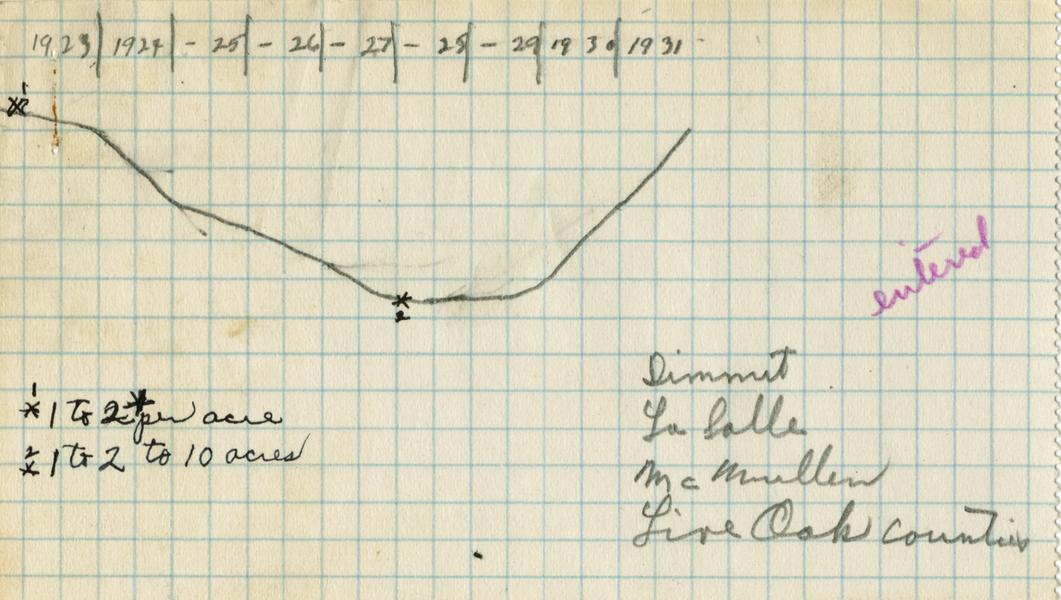 1923 | 1924 | - 25 | - 26 | - 27 | - 28 | - 29 | 1930 | 1931 -
x1
x
2
entered
1
x 1 to 2 per acre
2
x 1 to 2 to 10 acres
Dimmit
La Salle
McMullen
Live Oak counties